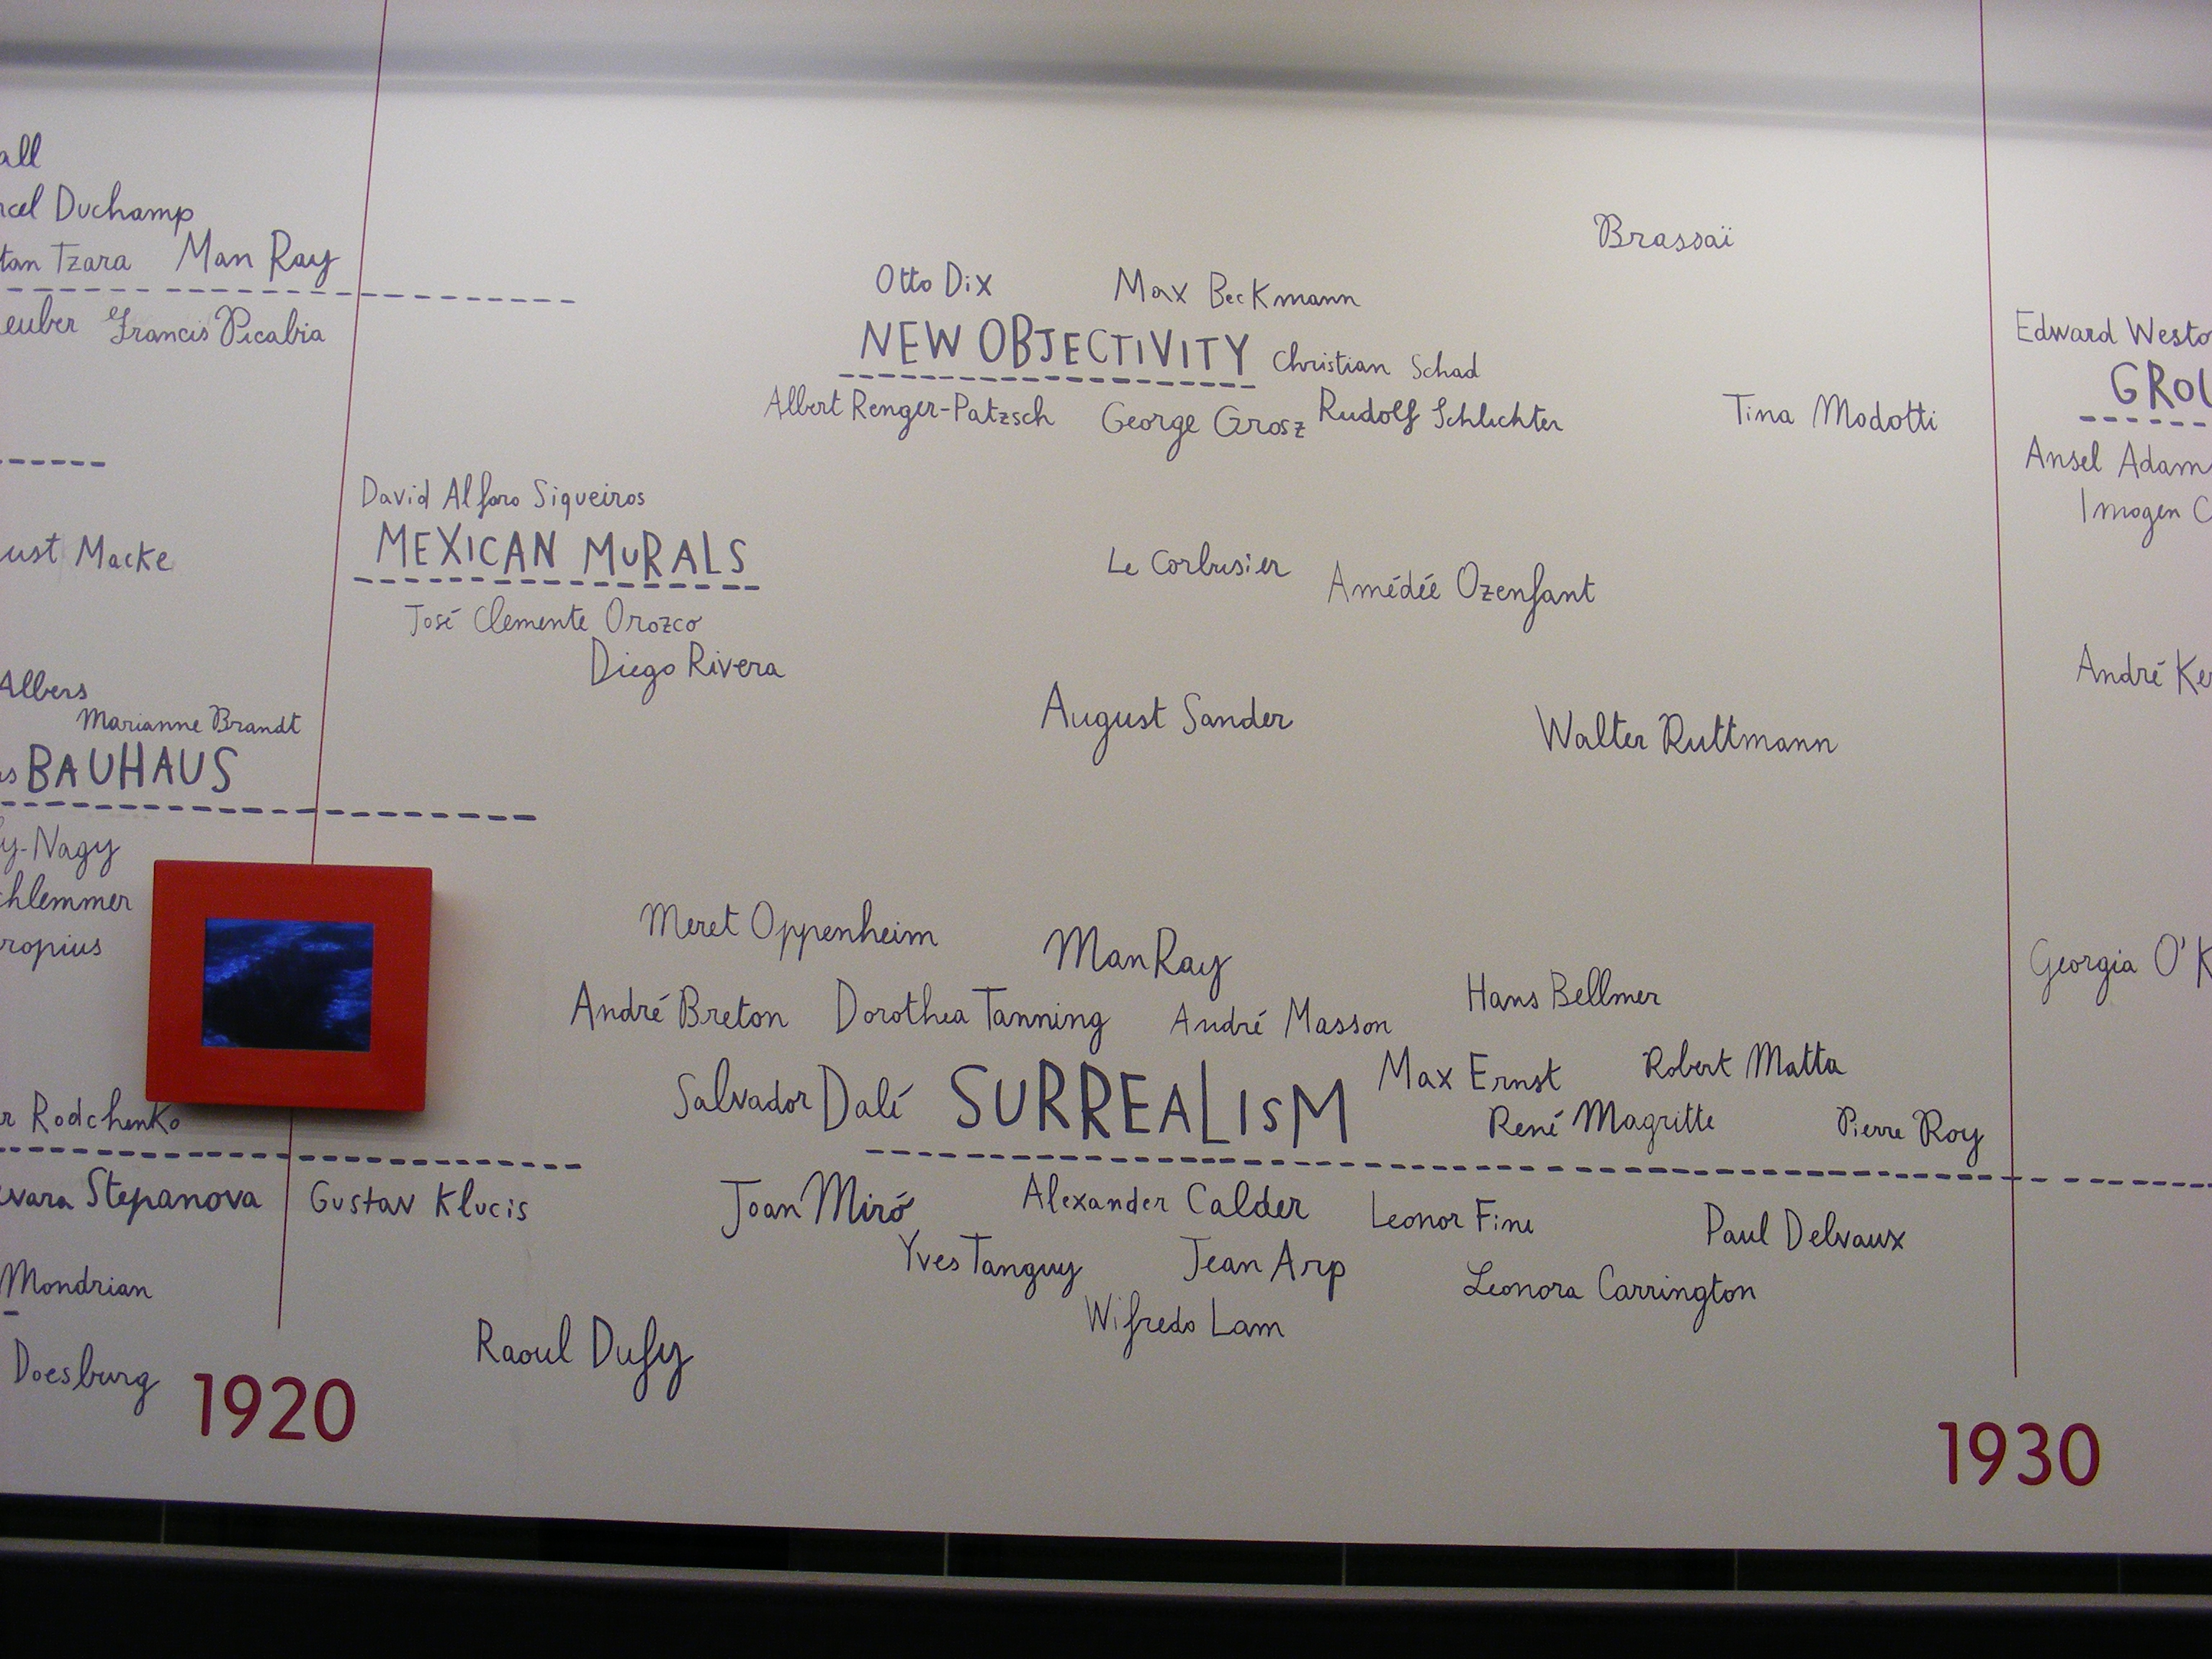 all
cel Duchamp
tan Tzara Man Ray
euber Francis Picabia
ust Macke
Albers
Marianne Brandt
s BAUHAUS
y-Nagy
hlemmer
ropius
r Rodchenko
vara Stepanova
Gustav Klucis
Mondrian
Doesburg
1920
David Alfaro Siqueiros
MEXICAN MURALS
José Clemente Orozco
Diego Rivera
Otto Dix Max Beckmann
NEW OBJECTIVITY Christian Schad
Albert Renger-Patzsch George Grosz Rudolf Schlichter
Brassaï
Tina Modotti
Le Corbusier Amédée Ozenfant
August Sander
Walter Ruttmann
Meret Oppenheim Man Ray
Hans Bellmer
André Breton Dorothea Tanning André Masson
Salvador Dalí SURREALISM Max Ernst Robert Matta
René Magritte Pierre Roy
Joan Miró Alexander Calder Leonor Fini Paul Delvaux
Yves Tanguy Jean Arp Leonora Carrington
Wifredo Lam
Raoul Dufy
1930
Edward Westo
GROU
Ansel Adams
Imogen C
André Ker
Georgia O'K